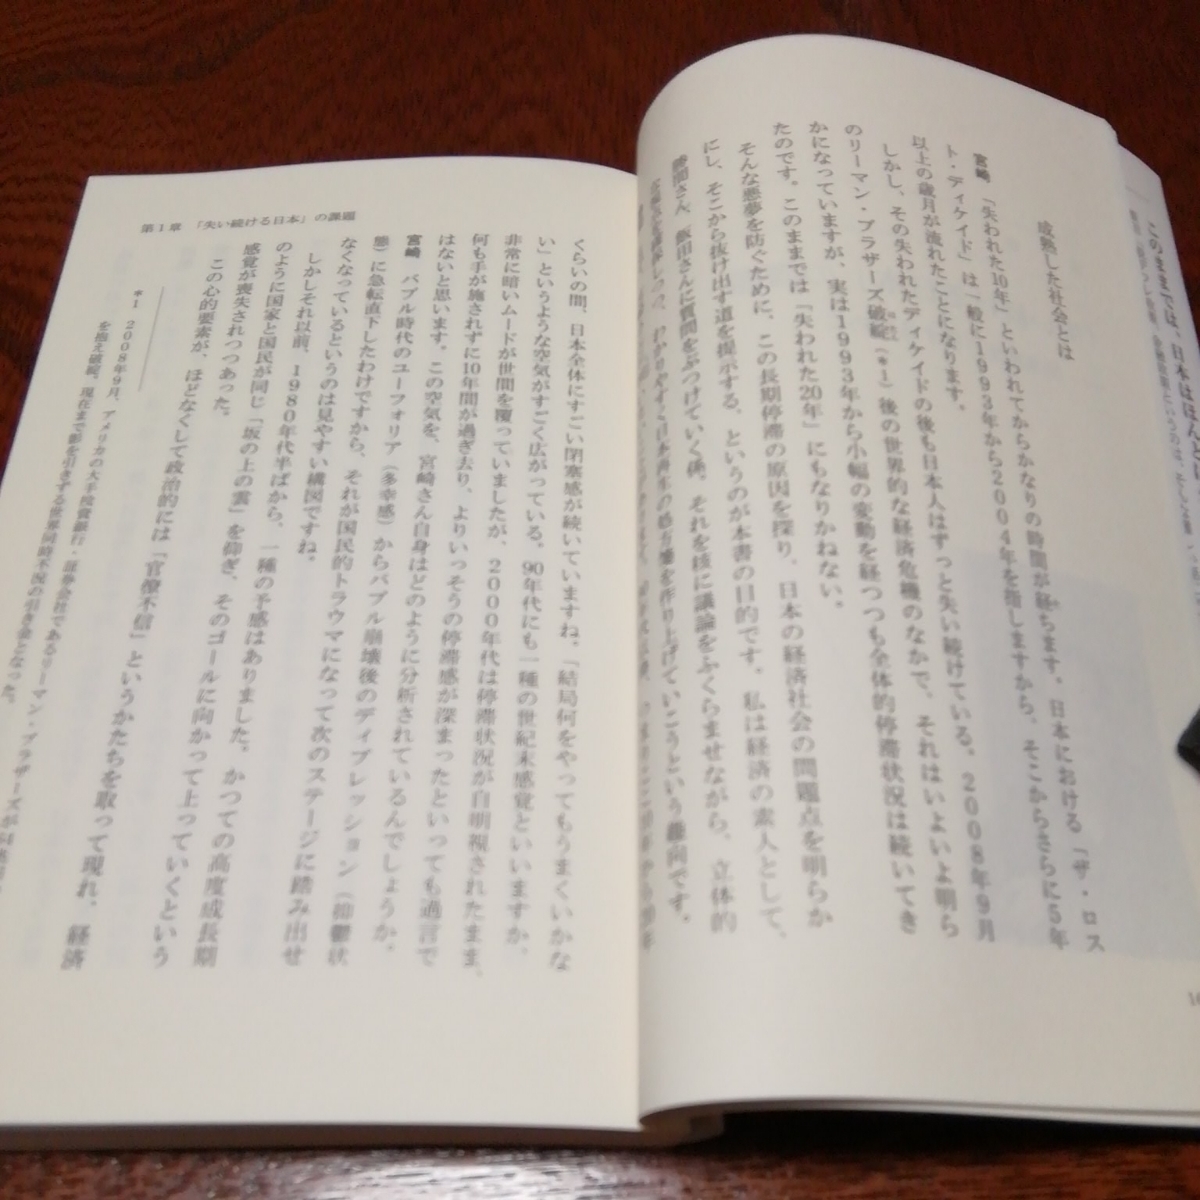 このままでは、日本はほんと
成熟した社会とは
宮崎　「失われた10年」といわれてからかなりの時間が経ちます。日本における「ザ・ロス
ト・ディケイド」は一般に1993年から2004年を指しますから、そこからさらに5年
以上の歳月が流れたことになります。
しかし、その失われたディケイドの後も日本人はずっと失い続けている。2008年9月
のリーマン・ブラザーズ破綻（＊1）後の世界的な経済危機のなかで、それはいよいよ明ら
かになっていますが、実は1993年から小幅の変動を経つつも全体的停滞状況は続いてき
たのです。このままでは「失われた20年」にもなりかねない。
そんな悪夢を防ぐために、この長期停滞の原因を探り、日本の経済社会の問題点を明らか
にし、そこから抜け出す道を提示する、というのが本書の目的です。私は経済の素人として、
勝間さん、飯田さんに質問をぶつけていく係、それを核に議論をふくらませながら、立体的
わかりやすく日本再生の処方箋を作り上げていこうという趣向です。
第1章　「失い続ける日本」の課題
くらいの間、日本全体にすごい閉塞感が続いていますね。「結局何をやってもうまくいかな
い」というような空気がすごく広がっている。90年代にも一種の世紀末感覚といいますか、
非常に暗いムードが世間を覆っていましたが、2000年代は停滞状況が自明視されたまま、
何も手が施されずに10年間が過ぎ去り、よりいっそうの停滞感が深まったといっても過言で
はないと思います。この空気を、宮崎さん自身はどのように分析されているんでしょうか。
宮崎　バブル時代のユーフォリア（多幸感）からバブル崩壊後のディプレッション（抑鬱状
態）に急転直下したわけですから、それが国民的トラウマになって次のステージに踏み出せ
なくなっているというのは見やすい構図ですね。
しかしそれ以前、1980年代半ばから、一種の予感はありました。かつての高度成長期
のように国家と国民が同じ「坂の上の雲」を仰ぎ、そのゴールに向かって上っていくという
感覚が喪失されつつあった。
この心的要素が、ほどなくして政治的には「官僚不信」というかたちを取って現れ、経済
＊1　2008年9月、アメリカの大手投資銀行・証券会社であるリーマン・ブラザーズが
を抱え破綻。現在まで影を引きずる世界同時不況の引き金となった。